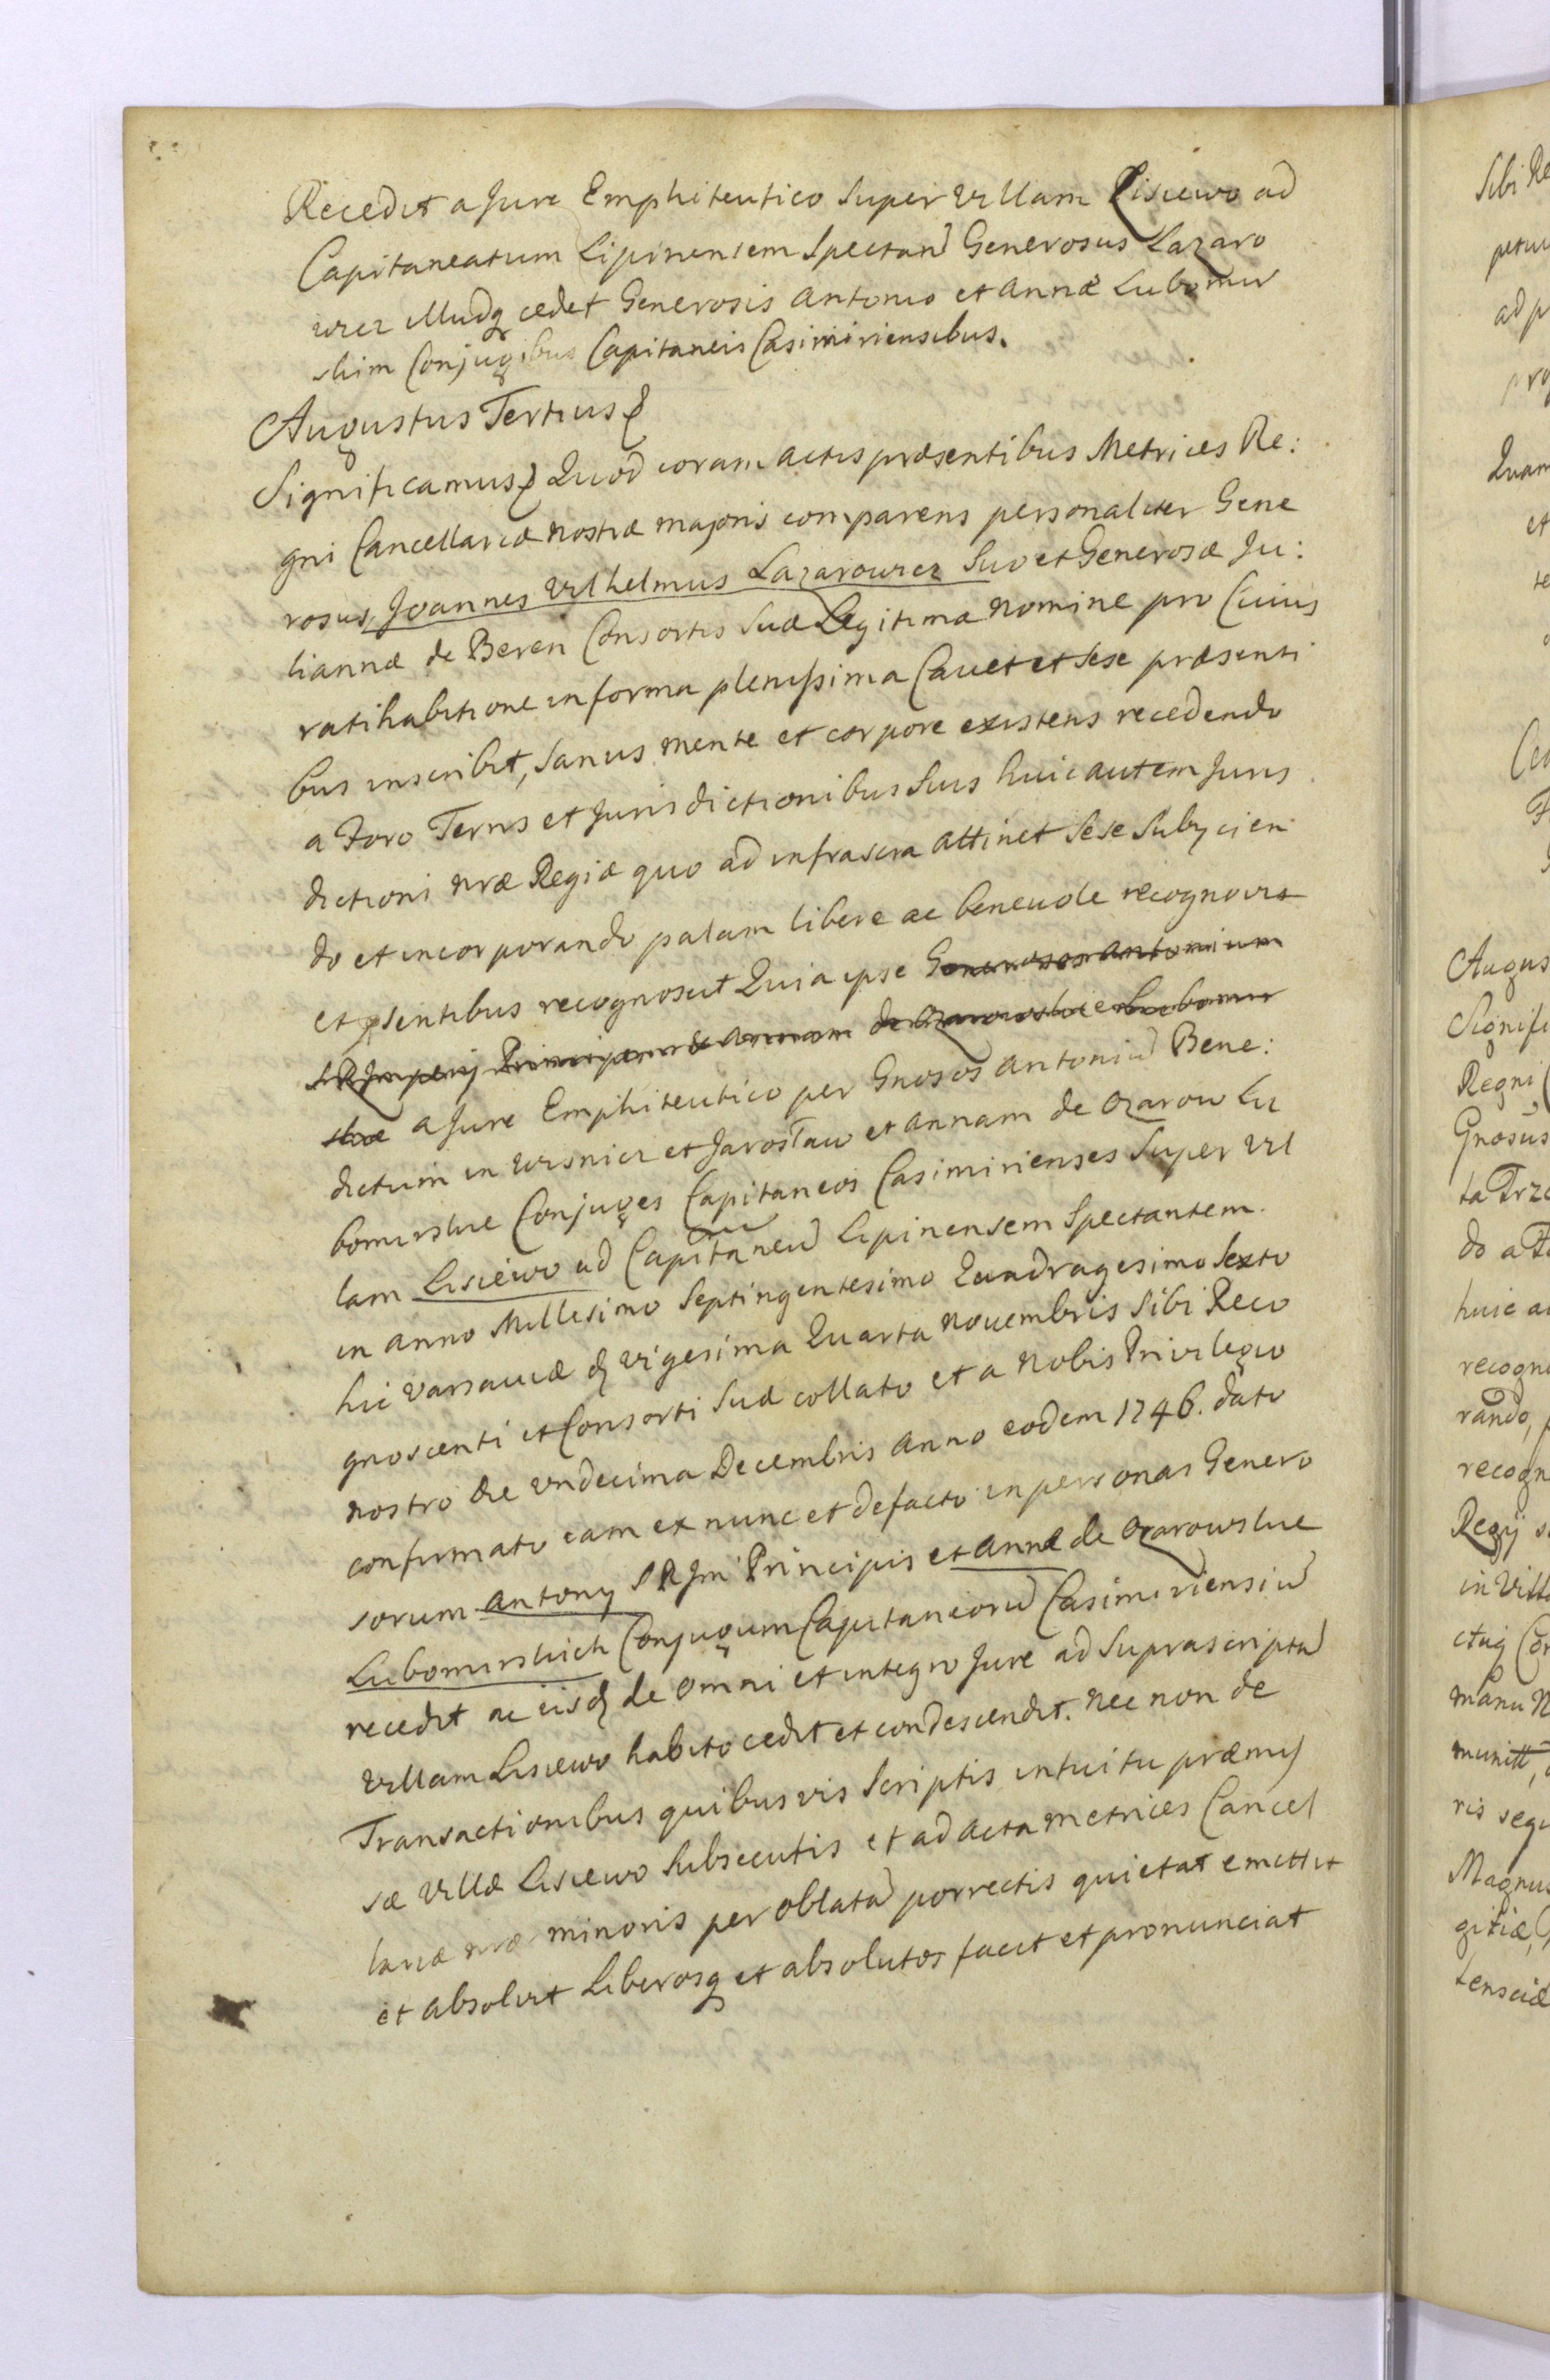 Recedit a Jure Emphiteutico Super Villam Lisiewo ad
Capitaneatum Lipinensem Spectan̄ Generosus Lazaro
wicz illudq cedet Generosis Antonio et Annæ Lubomir
skim Conjugibus Capitaneis Casimiriensibus.
Augustus Tertius &
Significamus & Quod coram Actis præsentibus Metrices Re:
gni Cancellariæ Nostræ majoris comparens personaliter Gene
rosus Joannes Vilhelmus Lazarowicz Suo et Generosæ Ju:
liannæ de Beren Consortis Suæ Legitimæ Nomine pro Cuius
ratihabitione in forma plenissima Cavet et Sese præsenti
bus inscribit, Sanus mente et corpore existens recedendo
a Foro Terris et Jurisdictionibus Suis huic autem Juris
dictioni nræ Regiæ quo ad infrascra Attinet Sese Subjicien
do et incorporando palam libere ac benevole recognovit
et psentibus recognoscit Quia ipse Generosos Antonium
S R Imperij Principem & Annam de Ozarowskie Lubomir
skæ a Jure Emphiteutico per Gnosos Antoniū Bene:
dictum in Wisnicz et Jarosław et Annam de Ozarow Lu
bomirskie Conjuges Capitaneos Casimirienses Super Vil
lam Lisiewo ad Capitaneū Lipinensem Spectantem
in Anno Millesimo Septingentesimo Quadragesimo Sexto
hic Varsaviæ d Vigesima Quarta Novembris Sibi Reco
gnoscenti et Consorti Suæ collato et a Nobis Privilegio
Nostro die Undecima Decembris Anno eodem 1746. dato
confirmato eam ex nunc et de facto in personas Genero
sorum Antonij S R Im Principis et Annæ de Ozarowskie
Lubomirskich Conjugum Capitaneorū Casimiriensiū
recedit ac iisd de Omni et integro Jure ad Suprascriptā
Villam Lisiewo habito cedit et condescendit. Nec non de
Transactionibus quibusvis Scriptis intuitu præmis
sæ Villæ Lisiewo Subsecutis et ad Acta Metrices Cancel
lariæ nræ minoris per Oblatā porrectis quietat emittit
et absolvit Liberosq et absolutos facit et pronunciat
Sibi Re
ad p
Quam
et
te
Augus
Signifi
Regni
Gnosus
ta Trze
do a Fo
huic au
recogno
rando,
recogn
Regij
in Villa
manu N
munitt,
ris segu
Magnus
gitiæ,
tensciæ